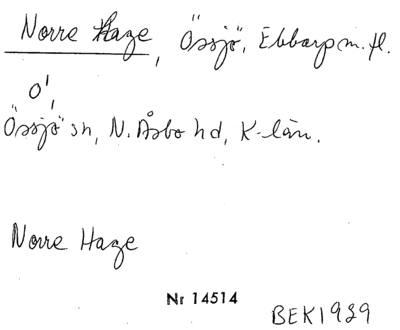 Norre Hage, Össjö, Ebbarp m.fl.
O',
Össjö sn, N. Åsbo hd, K-län.
Norre Hage
Nr 14514
BEK1929